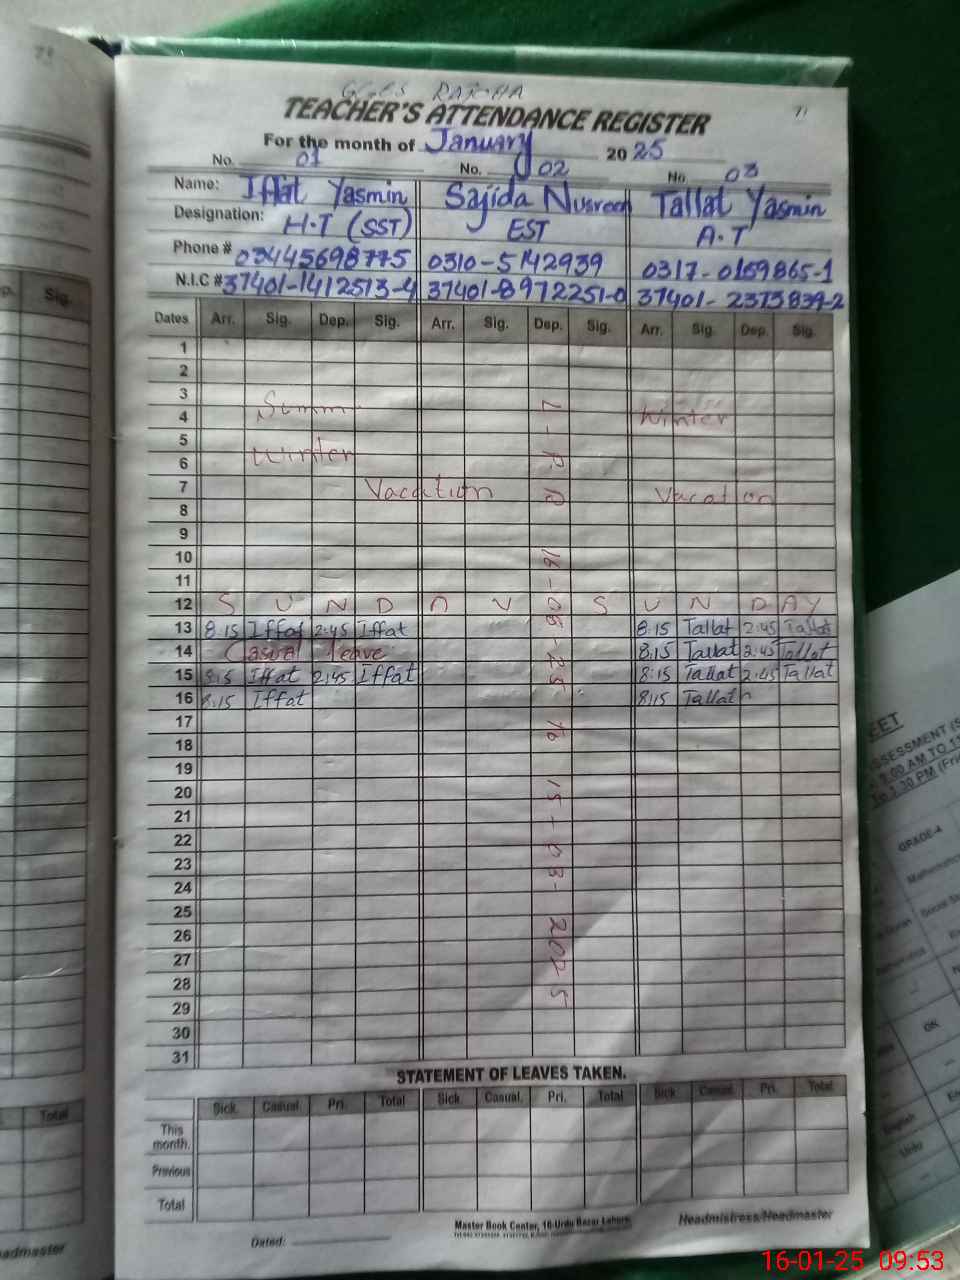 GGES RAJHA
TEACHER'S ATTENDANCE REGISTER
71
For the month of January 2025
No. 01 No. 02 No. 03
Name: Iffat Yasmin Sajida Nusreen Tallat Yasmin
Designation: H.T (SST) EST A.T
Phone # 03445698775 0310-5142939 0317-0159865-1
N.I.C # 37401-1412513-4 37401-8972251-0 37401-2373839-2
Dates Arr. Sig. Dep. Sig. Arr. Sig. Dep. Sig. Arr. Sig. Dep. Sig.
1
2
3
4 Summ Winter
5
6 Winter
7 Vacation Vacation
8
9
10
11
12 S U N D A Y S U N D A Y
13 8:15 Iffat 2:45 Iffat 8:15 Tallat 2:45 Tallat
14 Casual leave 8:15 Tallat 2:45 Tallat
15 8:15 Iffat 2:45 Iffat 8:15 Tallat 2:45 Tallat
16 8:15 Iffat 8:15 Tallat
17
18
19
20
21
22
23
24
25
26
27
28
29
30
31
to 15-03-2025
STATEMENT OF LEAVES TAKEN.
Sick. Casual. Pri. Total Sick. Casual. Pri. Total Sick Casual. Pri. Total
This month.
Previous
Total
Dated:
Master Book Center, 16-Urdu Bazar Lahore.
Headmistress/Headmaster
Sig.
Total
GRADE-4
16-01-25 09:53